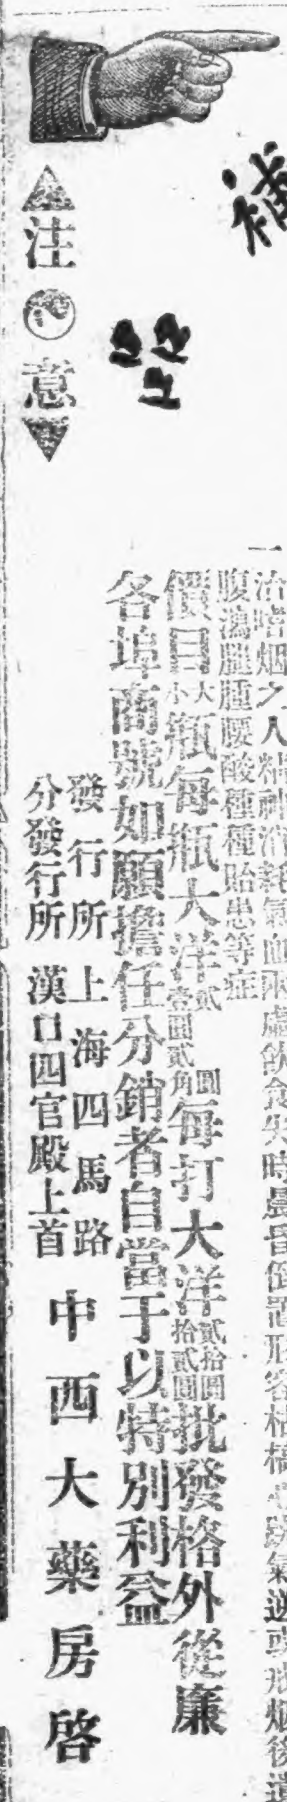 補
一治嗜烟之人精神消耗氣血兩虛飲食失時晨昏倒置形容枯槁心跳氣逆或戒烟後遺
腹瀉腿腫腰酸種種貽患等症
價目大小瓶每瓶大洋貳圓壹圓貳角每打大洋貳拾圓拾貳圓批發格外從廉
各埠商號如願擔任分銷者自當于以特別利益
發行所 上海四馬路
分發行所 漢口四官殿上首
中西大藥房啓
注意